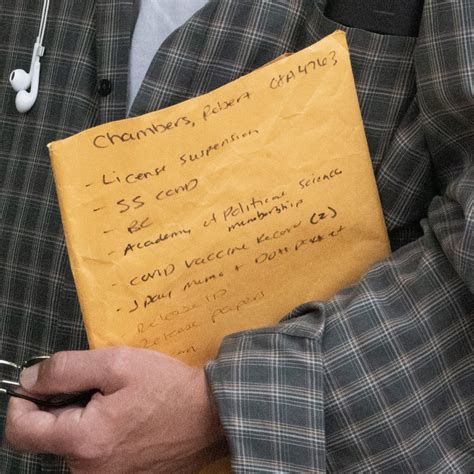 Chambers, Robert
- License Suspension
- SS CARD
- BC
- Academy of Political Science
membership
- COVID Vaccine Record (2)
- JPay Memo + packet
Release ID
Release papers